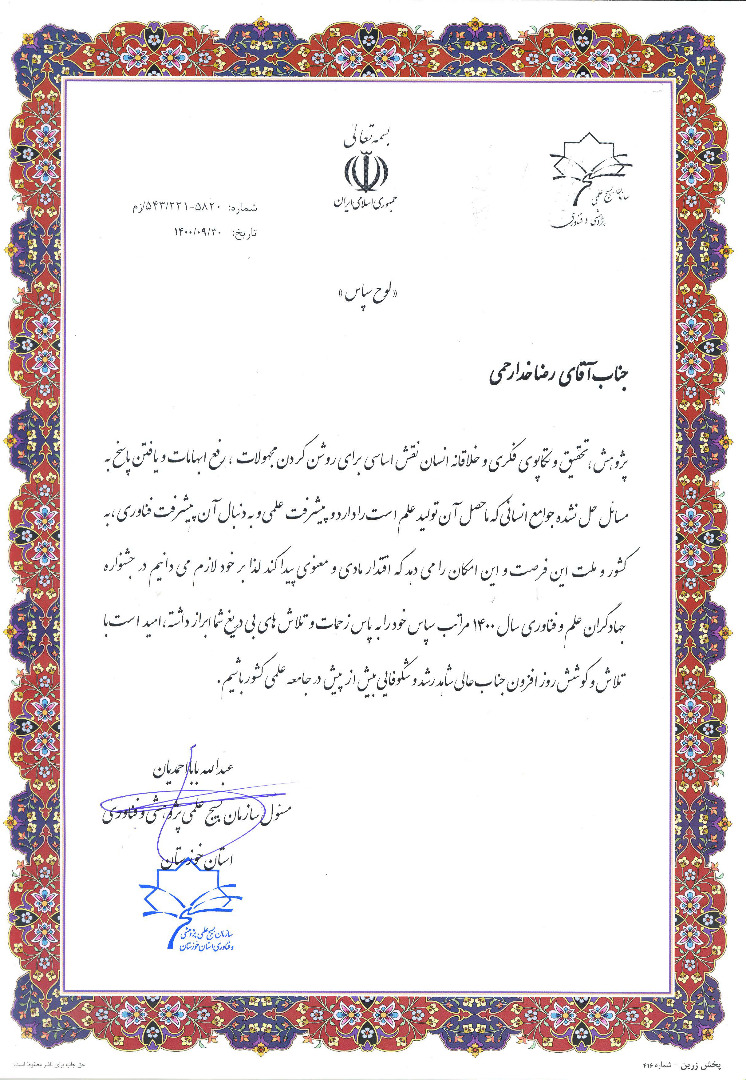 بسمه تعالی
جمهوری اسلامی ایران
سازمان بسیج علمی
پژوهشی و فناوری
شماره: ۵۸۲۰-۵۴۳/۲۲۱/زم
تاریخ: ۱۴۰۰/۰۹/۳۰
«لوح سپاس»
جناب آقای رضا خدارحمی
پژوهش، تحقیق و تکاپوی فکری و خلاقانه انسان نقش اساسی برای روشن کردن مجهولات ، رفع ابهامات و یافتن پاسخ به
مسائل حل نشده جوامع انسانی که ماحصل آن تولید علم است را دارد و پیشرفت علمی و به دنبال آن پیشرفت فناوری، به
کشور و ملت این فرصت و این امکان را می دهد که اقتدار مادی و معنوی پیدا کند لذا بر خود لازم می دانیم در جشنواره
جهادگران علم و فناوری سال ۱۴۰۰ مراتب سپاس خود را به پاس زحمات و تلاش های بی دریغ شما ابراز داشته، امید است با
تلاش و کوشش روز افزون جناب عالی شاهد رشد و شکوفایی بیش از پیش در جامعه علمی کشور باشیم.
عبدالله بابااحمدیان
مسئول سازمان بسیج علمی پژوهشی و فناوری
استان خوزستان
سازمان بسیج علمی پژوهشی
و فناوری استان خوزستان
پخش زرین - شماره ۴۱۶
حق چاپ برای ناشر محفوظ است